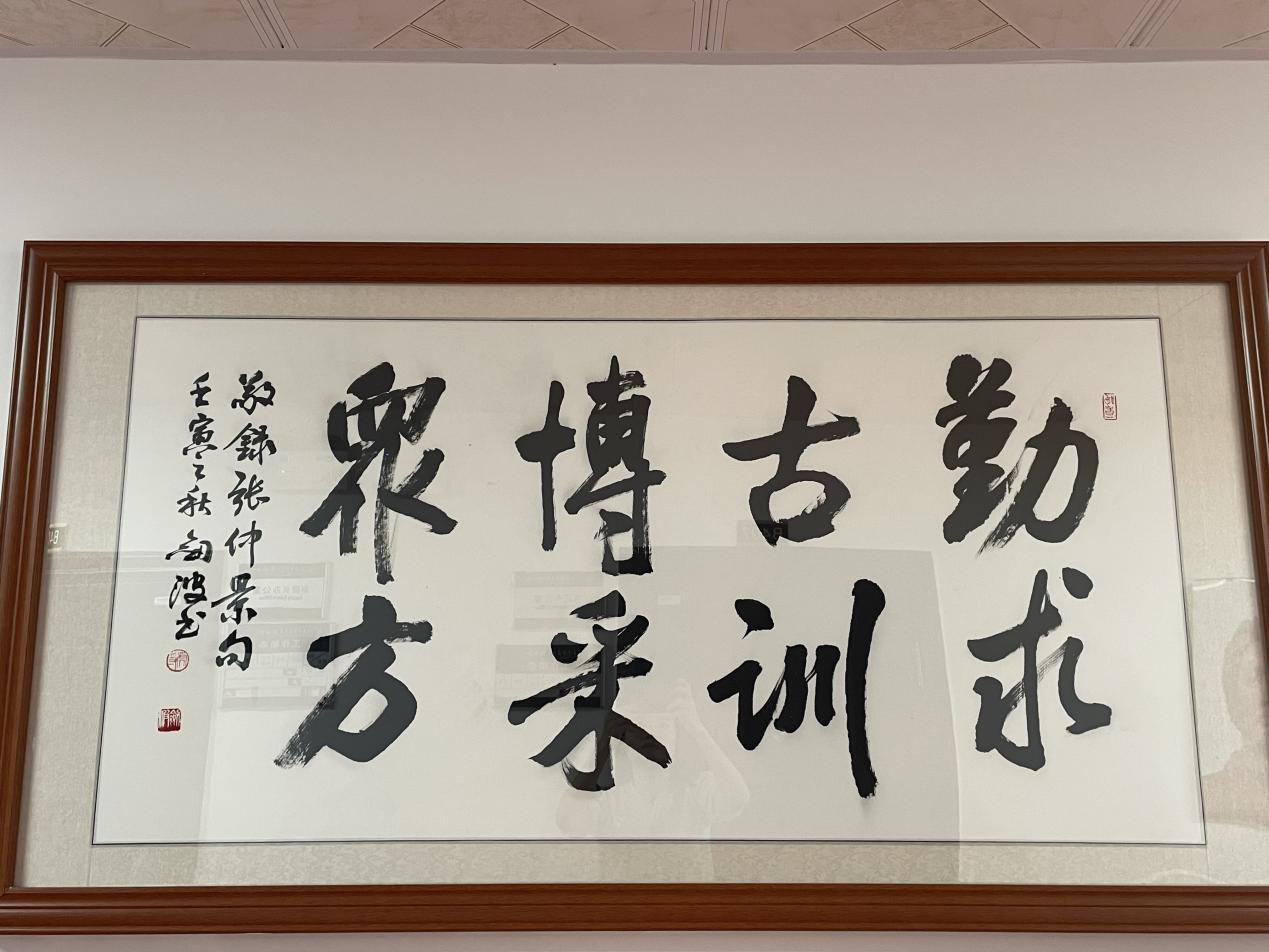 勤求
古训
博采
眾方
敬録张仲景句
壬寅之秋剑波书